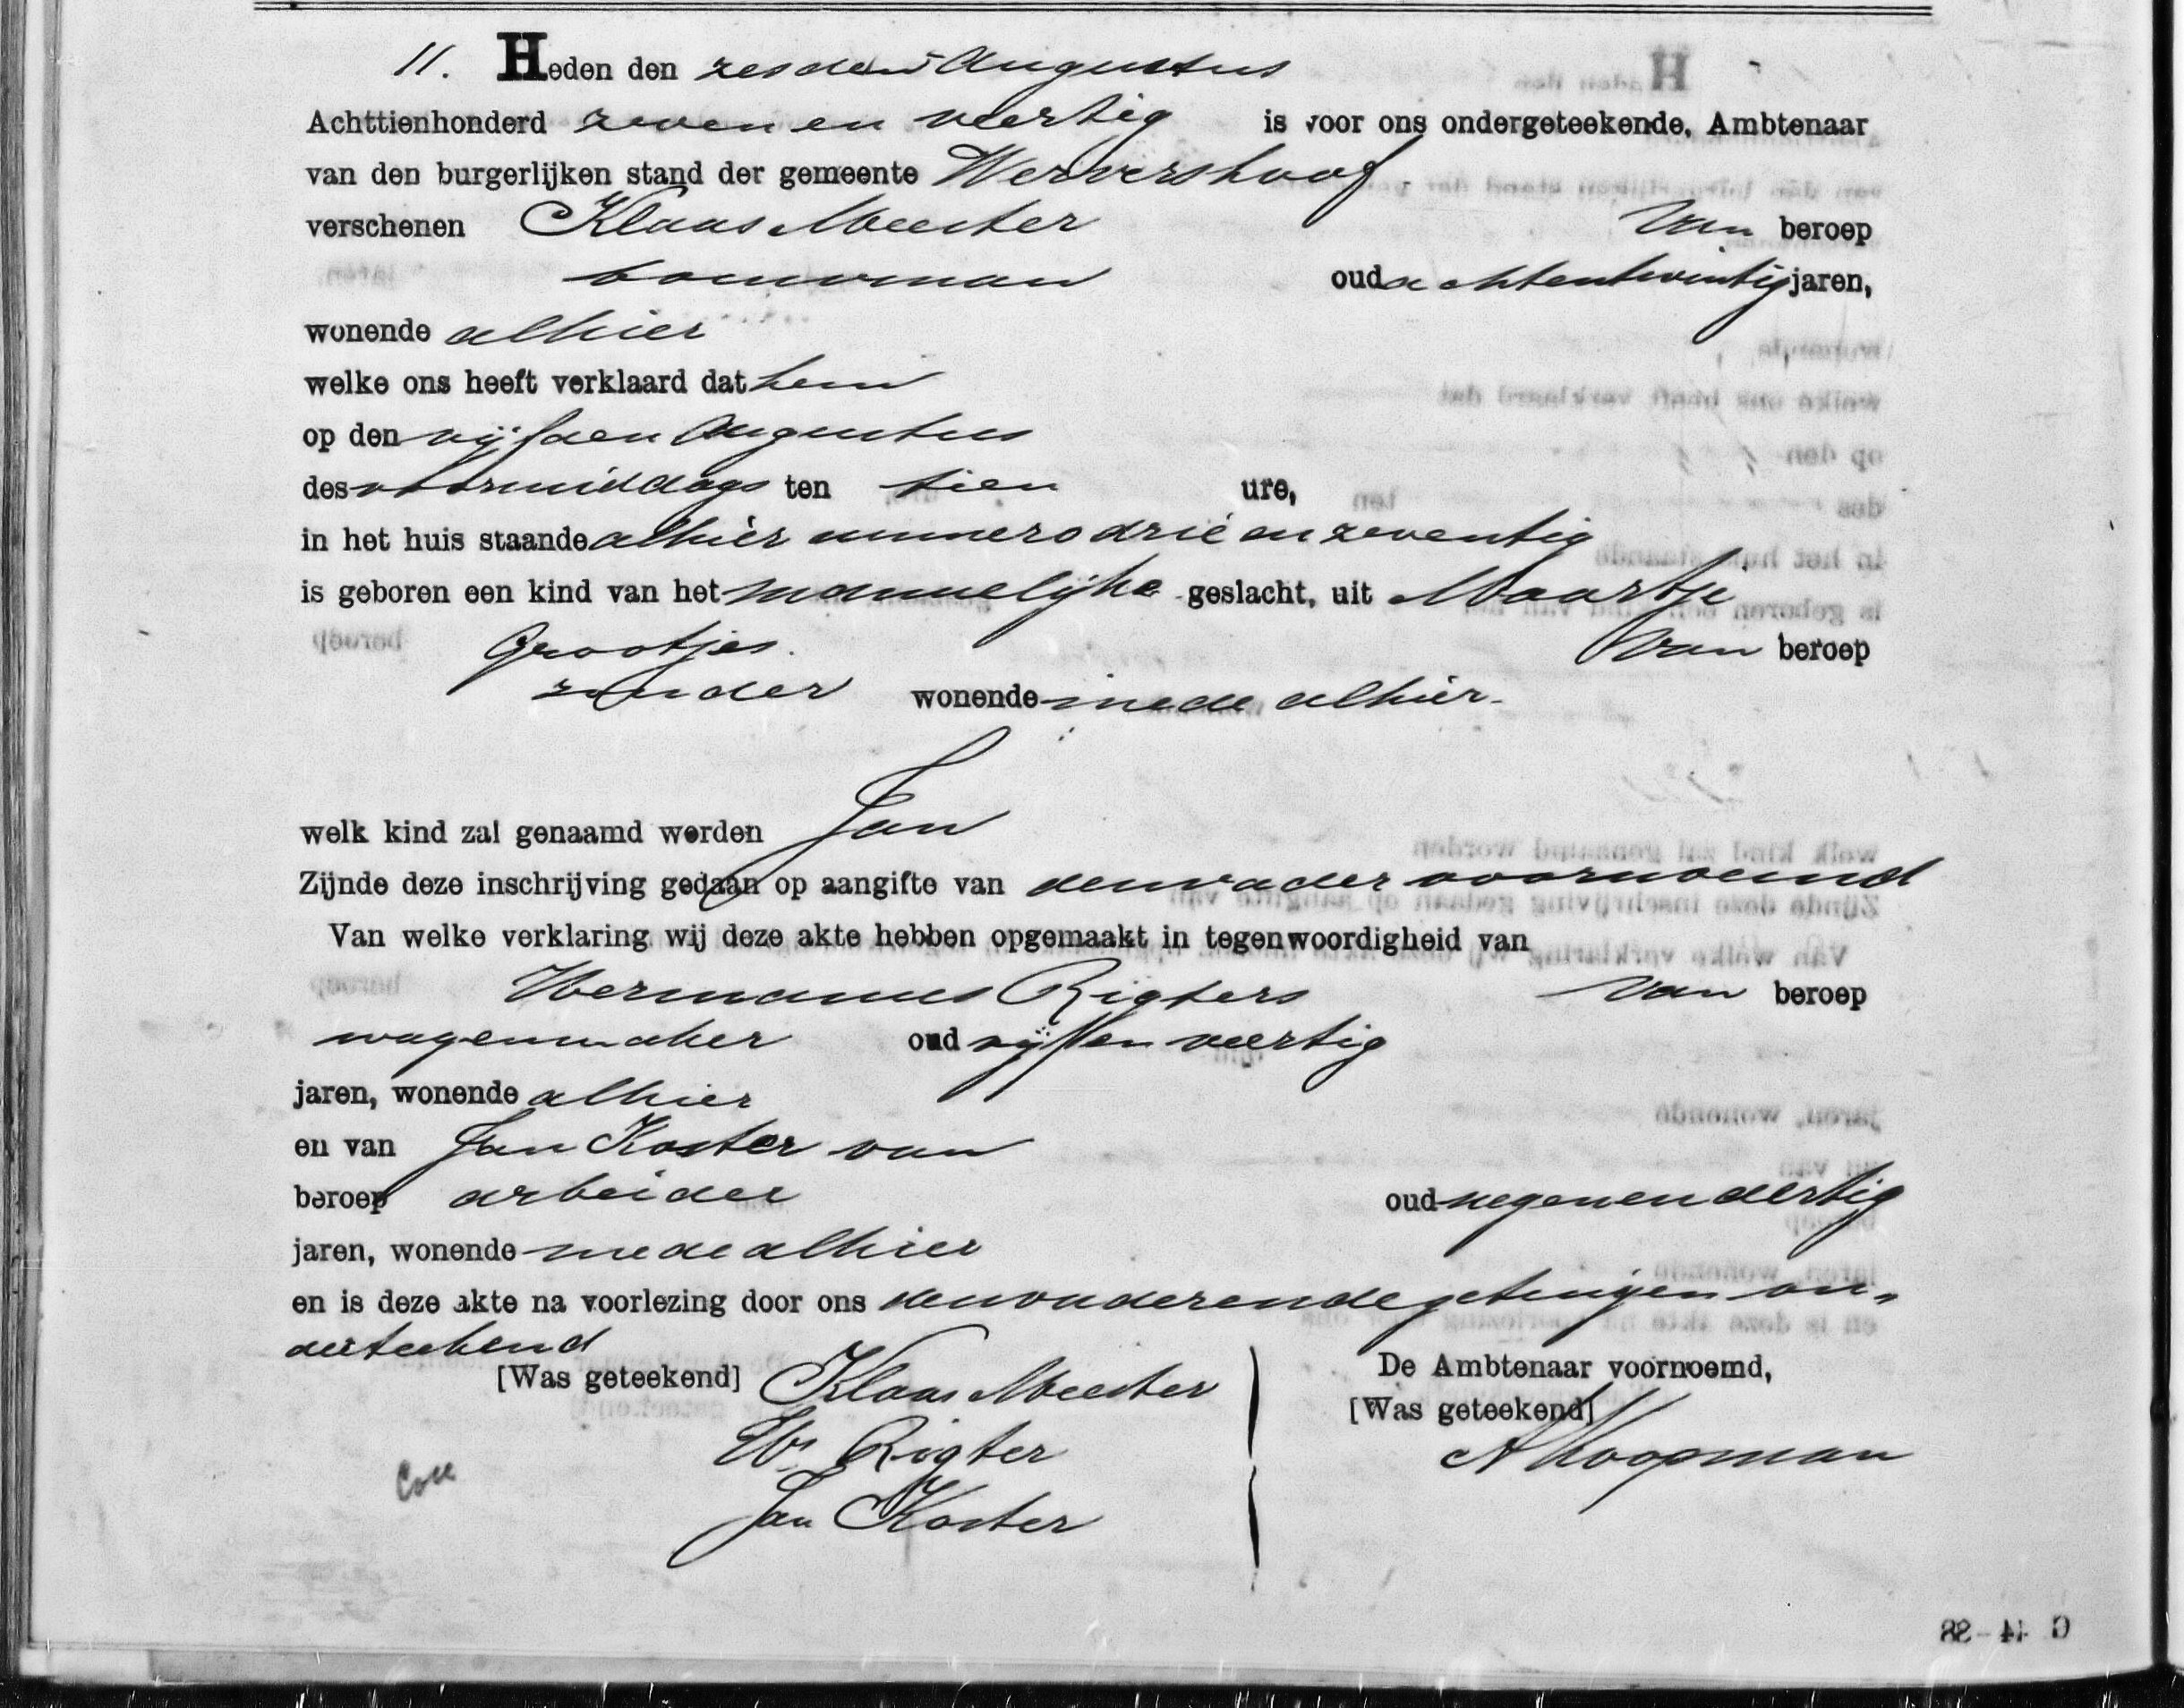 11. Heden den zesden Augustus
Achttienhonderd zeven en veertig is voor ons ondergeteekende, Ambtenaar
van den burgerlijken stand der gemeente Wervershoof
verschenen Klaas Meester van beroep
bouwman oud achtentwintig jaren,
wonende alhier
welke ons heeft verklaard dat hem
op den vijfden Augustus
des voormiddags ten tien ure,
in het huis staande alhier numero drie en zeventig
is geboren een kind van het mannelijke geslacht, uit Maartje
Grootjes. van beroep
zonder wonende mede alhier.
welk kind zal genaamd worden Jan
Zijnde deze inschrijving gedaan op aangifte van den vader voornoemd
Van welke verklaring wij deze akte hebben opgemaakt in tegenwoordigheid van
Hermanus Rigters van beroep
wagenmaker oud vijf en veertig
jaren, wonende alhier
en van Jan Koster van
beroep arbeider oud negenendertig
jaren, wonende mede alhier
en is deze akte na voorlezing door ons den vader en de getuigen on„
derteekend
[Was geteekend] Klaas Meester
De Ambtenaar voornoemd,
[Was geteekend]
Hs Rigter
A Koopman
Jan Koster
G 44-88